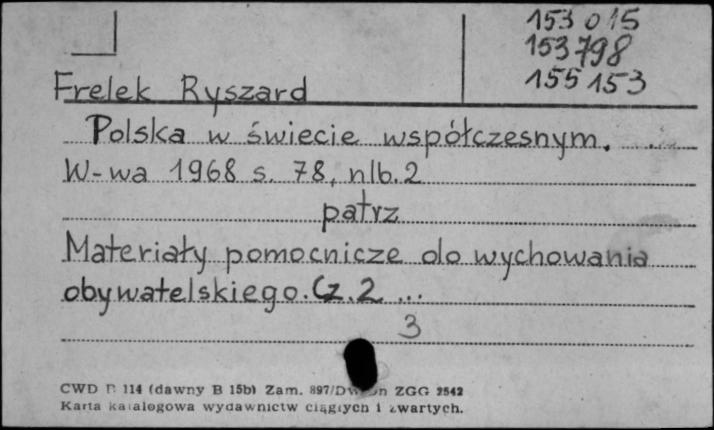 153 015
153798
155153
Frelek Ryszard
Polska w świecie współczesnym.
W-wa 1968 s. 78, nlb. 2
patrz
Materiały pomocnicze do wychowania
obywatelskiego. Cz. 2 ...
3
CWD 114 (dawny B 15b) Zam. 897/ ZGG 2542
Karta katalogowa wydawnictw ciągłych i zwartych.